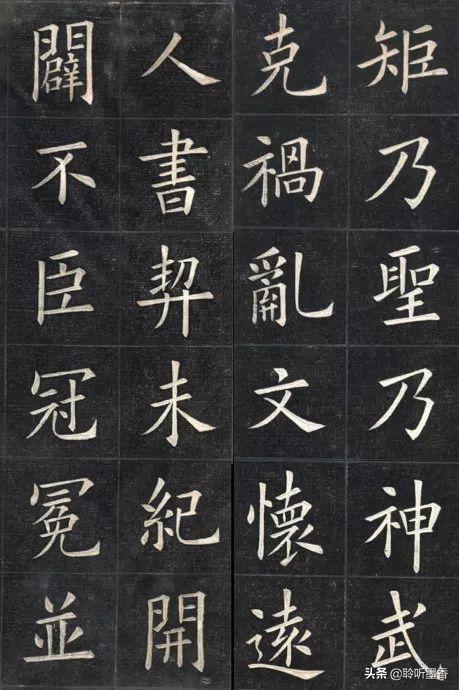 矩乃聖乃神武
克禍亂文懷遠
人書契未紀開
闢不臣冠冕並
头条 @聆听墨香